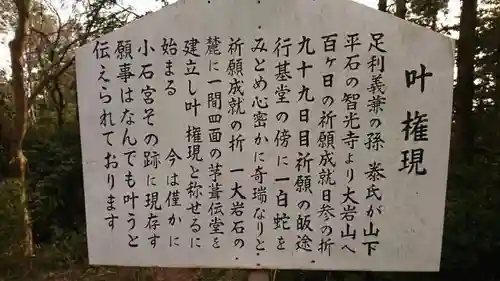 叶權現
足利義兼の孫 泰氏が山下
平石の智光寺より大岩山へ
百ヶ日の祈願成就日参の折
九十九日目祈願の皈途
行基堂の傍に一白蛇を
みとめ心密かに奇瑞なりと
祈願成就の折 一大岩石の
麓に一間四面の茅葺伝堂を
建立し叶 権現と称せるに
始まる 今は僅かに
小石宮その跡に現存す
願事はなんでも叶うと
伝えられております